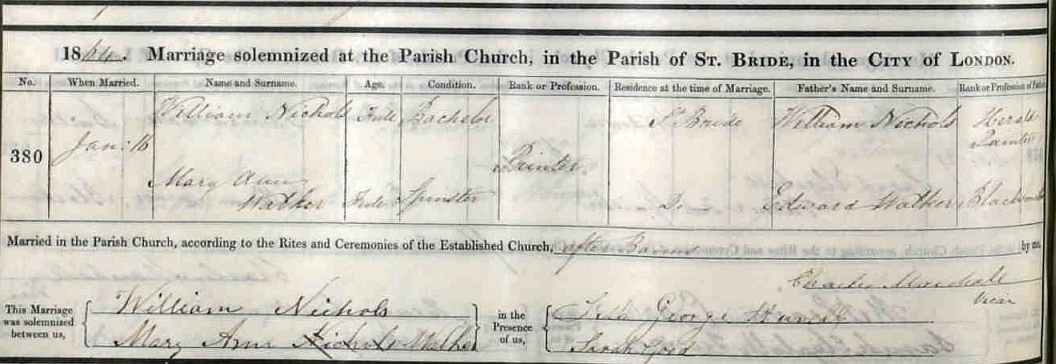 1864. Marriage solemnized at the Parish Church, in the Parish of ST. BRIDE, in the CITY of LONDON.
No. When Married. Name and Surname. Age. Condition. Rank or Profession. Residence at the time of Marriage. Father's Name and Surname. Rank or Profession of Father
William Nichols Full Bachelor St Bride William Nichols Herald Painter
380 Jan: 16 Painter
Mary Ann Walker Full Spinster Do Edward Walker Blacksmith
Married in the Parish Church, according to the Rites and Ceremonies of the Established Church, after Banns by me,
Charles Marshall
Vicar
This Marriage was solemnized between us,
William Nichols
Mary Ann Nichols Walker
in the Presence of us,
George
Sarah